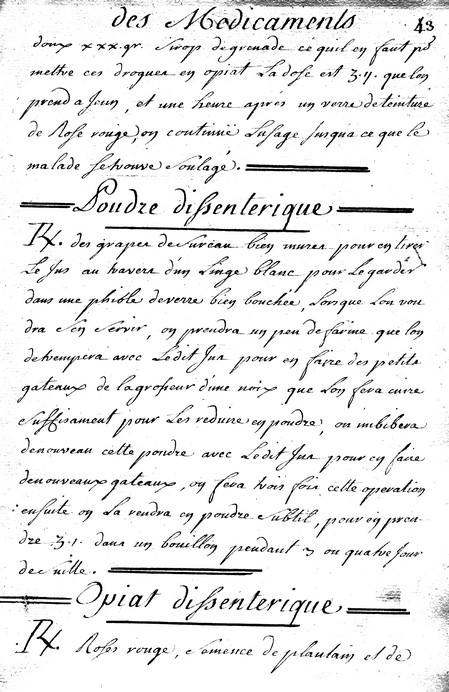 des Medicaments 43
doux xxx.gr. Sirop de grenade ce quil en faut pr
mettre ces drogues en opiat La dose est ʒ.ij. que lon
prend a Jeun, et une heure apres un verre de teinture
de Rose rouge, on continüe Lusage Jusqua ce que le
malade se trouve Soulagé.
Poudre dissenterique
℞. des grapes de Sureau bien mures pour en tirer
Le Jus au travers d'un Linge blanc pour Le garder
dans une phible de verre bien bouchée, Lorsque Lon vou
dra S'en Servir, on prendra un peu de farine que lon
detrempera avec Ledit Jus pour en faire des petits
gateaux de la grosseur d'une noix que Lon fera cuire
Suffisament pour Les reduire en poudre, on imbibera
denouveau cette poudre avec Ledit Jus pour en faire
denouveaux gateaux, on fera trois fois cette operation
ensuite on La rendra en poudre Subtil, pour en pren-
dre ʒ.i. dans un bouillon pendant 3 ou quatre Jour
de Suitte.
Opiat dissenterique
℞. Roses rouge, Semence de plantain et de